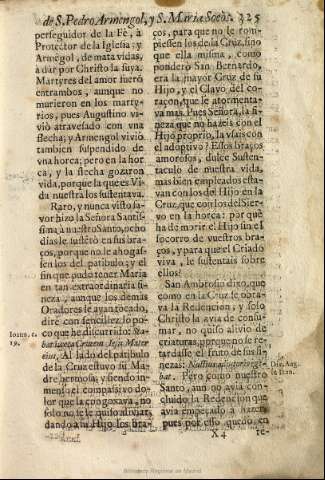 de S. Pedro Armengol, y S. Maria Socòs. 325
perseguidor de la Fè, à
Protector de la Iglesia; y
Armẽgol, de mata vidas,
à dar por Christo la suya.
Martyres del amor fuerõ
entrambos, aunque no
murieron en los marty-
rios, pues Augustino vi-
viò atravesado con vna
flecha; y Armengol viviò
tambien suspendido de
vna horca; pero en la hor
ca, y la flecha gozaron
vida, porque la que es Vi-
da nuestra los sustentava.
Raro, y nunca visto fa-
vor hizo la Señora Santis-
sima à nuestro Santo, ocho
dias le sustẽtò en sus bra-
ços, porque no le ahogas-
sen los del patibulo; y el
fin que pudo tener Maria
en tan extraordinaria fi-
neza, aunque los demàs
Oradores le ayan tocado,
dirè con sencillez lo po-
co que he discurrido: Sta-
Ioann. c. 19.
bat iuxta Crucem Iesu Mater
eius. Al lado del patibulo
de la Cruz estuvo su Ma-
dre hermosa; y siendo in-
menso el compassivo do-
lor que la congoxava, no
solo no se le quiso aliviar,
dandola su Hijo los bra-
ços, para que no le rom-
piessen los de la Cruz, sino
que ella misma, como
ponderò San Bernardo,
era la mayor Cruz de su
Hijo, y el Clavo del co-
raçon, que le atormenta-
va mas. Pues Señora, la fi-
neza que no hazeis con el
Hijo proprio, la vsais con
el adoptivo? Essos braços
amorosos, dulce Susten-
taculo de nuestra vida,
mas bien empleados esta-
van con los del Hijo en la
Cruz, que con los del Sier-
vo en la horca: por què
ha de morir el Hijo sin el
socorro de vuestros bra-
ços, y para que el Criado
viva, le sustentais sobre
ellos?
San Ambrosio dixo, que
como en la Cruz se obra-
va la Redencion, y solo
Christo la avia de consu-
mar, no quiso alivio de
criaturas, porque no se re-
tardasse el fruto de sus fi-
nezas:
Pero como nuestro
Santo, aun no avia con-
cluìdo la Redencion que
avia empeçado à hazer,
pues por esso quedò en
X4